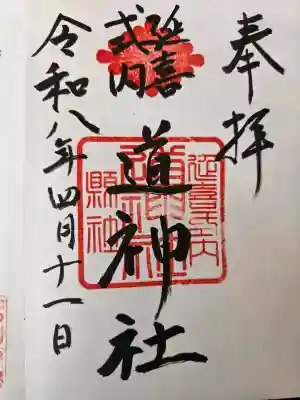 奉拝
延喜
式内
道神社
延喜式内
縣社
令和八年四月十一日